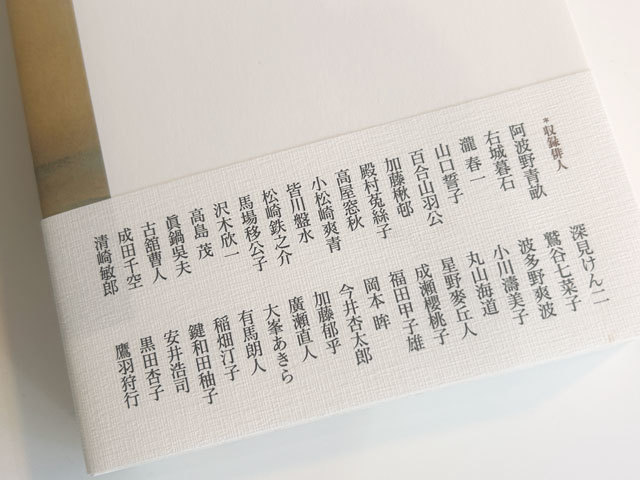 *収録俳人
阿波野青畝
右城暮石
瀧 春一
山口誓子
百合山羽公
加藤楸邨
殿村菟絲子
高屋窓秋
小松崎爽青
皆川盤水
松崎鉄之介
馬場移公子
沢木欣一
高島 茂
眞鍋呉夫
古舘曹人
成田千空
清崎敏郎
深見けん二
鷲谷七菜子
波多野爽波
小川濤美子
丸山海道
星野麥丘人
成瀬櫻桃子
福田甲子雄
岡本 眸
今井杏太郎
加藤郁乎
廣瀬直人
大峯あきら
有馬朗人
稲畑汀子
鍵和田秞子
安井浩司
黒田杏子
鷹羽狩行